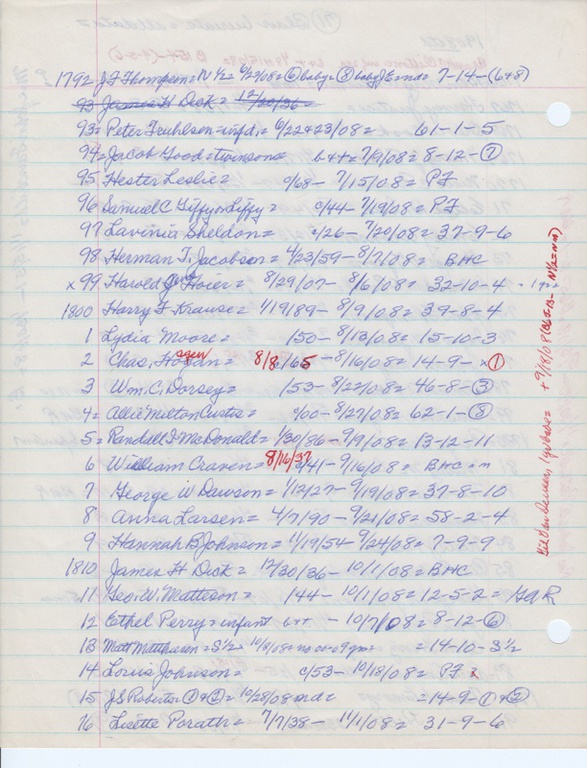 1792 J F Thompson = N 1/2 = 6/29/08 = ⑥ baby = ⑧ baby J E = nd = 7-14-(6+8)
93 James H Dick = 12/30/36 =
93 = Peter Truhlson = infd. 6/22+23/08 = 61-1-5
94 = Jacob Good = twin sons b+t = 7/9/08 = 8-12-⑦
95 Hester Leslie = c/68 - 7/15/08 = PF
96 Samuel C Giffy or Liffy = c/44 - 7/19/08 = PF
97 Lavinia Sheldon = c/26 - 7/20/08 = 37-9-6
98 Herman T. Jacobson = 4/23/59 - 8/7/08 = BHC
x 99 Harold Hoier = 8/29/07 - 8/6/08 = 32-10-4
1800 Harry F Krause = 1/19/89 - 8/9/08 = 39-8-4
1 Lydia Moore = 150 - 8/13/08 = 15-10-3
2 Chas. Hogan = 8/8/65 - 8/16/08 = 14-9- x①
3 Wm. C. Dorsey = 153 - 8/22/08 = 46-8-③
4 = Allie Milton Curtis = c/00 - 8/27/08 = 62-1-⑧
5 = Randall I McDonald = 1/30/86 - 9/9/08 = 13-12-11
6 William Craven = 8/16/37 c/41 - 9/16/08 = BHC = m
7 George W Dawson = 1/12/27 - 9/19/08 = 37-8-10
8 Anna Larsen = 4/7/90 - 9/21/08 = 58-2-4
9 Hannah B Johnson = 1/19/54 9/24/08 = 7-9-9
1810 James H Dick = 12/30/36 - 10/1/08 = BHC
11 Geo. W. Matteson = 144 - 10/1/08 = 12-5-2 = GAR
12 Ethel Perry = infant b+t - 10/7/08 = 8-12-⑥
13 Matt Matthiasen = S 1/2 = 10/8/08 = no = 14-10-3 1/2
14 Louis Johnson = c/53 - 10/18/08 = PF x
15 J S Roberton ①+② = 10/28/08 nd = 14-9-①+②
16 Lisette Porath = 7/7/38 - 11/1/08 = 31-9-6